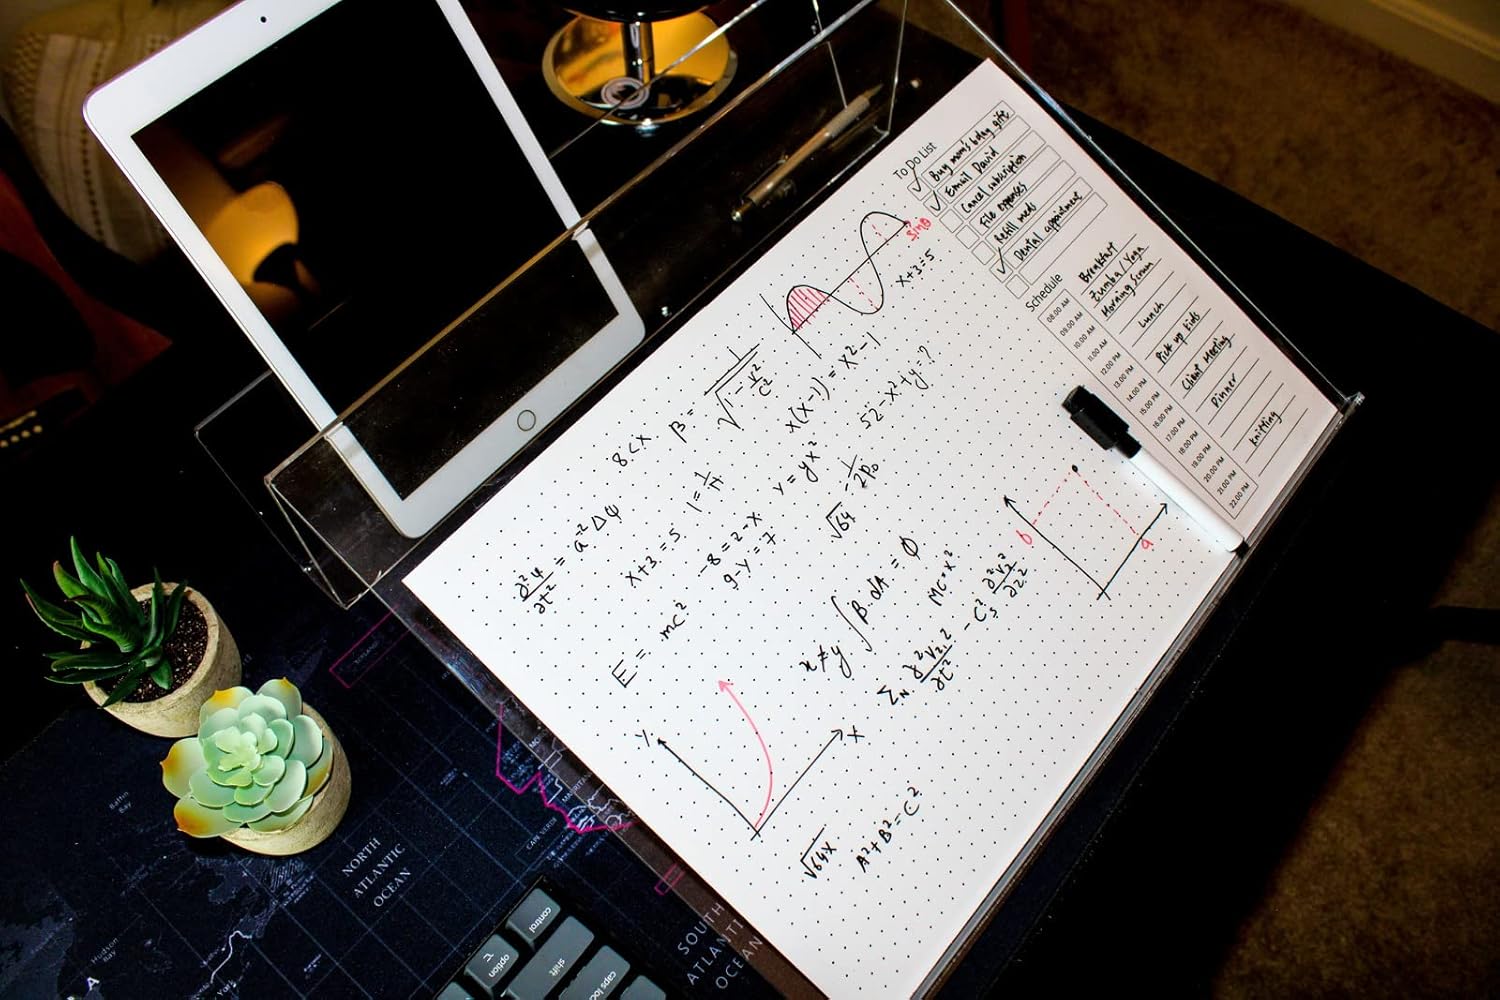 To Do List
Buy mom's bday gift
Email David
Cancel subscription
File expenses
Refill meds
Dental appointment
Schedule
08.00 AM Breakfast
09.00 AM Zumba / Yoga
10.00 AM Morning Scrum
11.00 AM
12.00 PM Lunch
13.00 PM
14.00 PM Pick up kids
15.00 PM
16.00 PM Client Meeting
17.00 PM
18.00 PM Dinner
19.00 PM
20.00 PM
21.00 PM knitting
22.00 PM
sinθ
x+3=5
8.Cx
β = 1/√(1-v²/c²)
x(x-1) = x²-1
∂²ψ/∂t² = a² Δψ
x+3=5
y = yx²
52-x²+y=?
-8=2-x
9-y=7
√64
E = mc²
x≠y
∫B.dA = ϕ
MC·x²
b
a
Y
X
√64x
A²+B²=C²
NORTH
ATLANTIC
OCEAN
SOUTH
ATLANTIC
OCEAN
Baffin
Bay
Hudson
Bay
CAPE VERDE
control
option
shift
caps lock